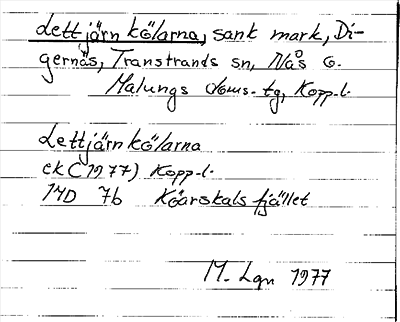 Lettjärnkölarna, sank mark, Di-
gernäs, Transtrands sn, Nås o.
Malungs doms. tg, Kopp.l.
Lettjärnkölarna
ek (1977) Kopp.l.
14D 7b Köarskalsfjället
M. Lgn 1977